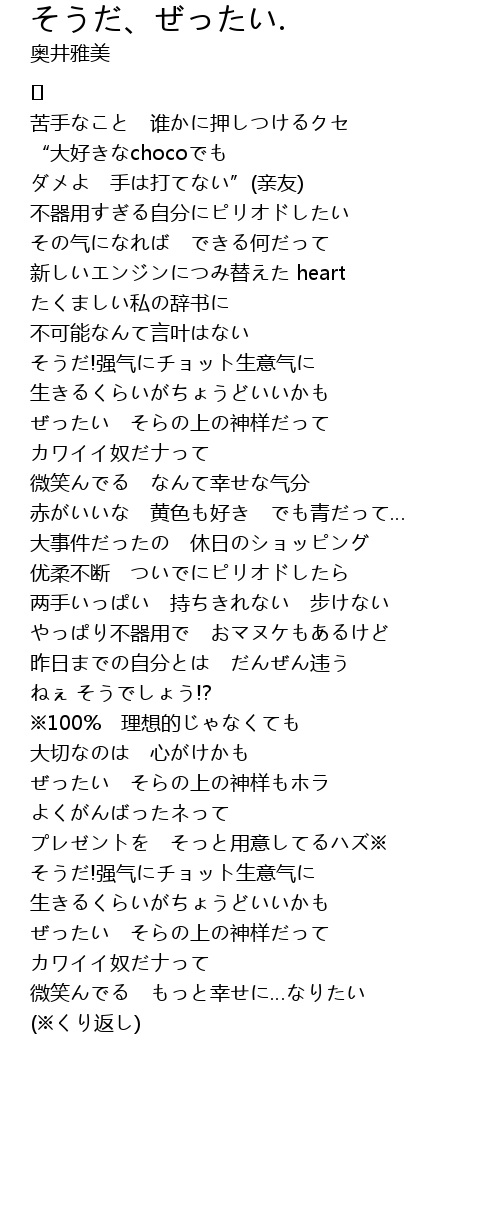 そうだ、ぜったい.
奥井雅美
[]
苦手なこと　誰かに押しつけるクセ
“大好きなchocoでも
ダメよ　手は打てない”(亲友)
不器用すぎる自分にピリオドしたい
その气になれば　できる何だって
新しいエンジンにつみ替えた heart
たくましい私の辞书に
不可能なんて言叶はない
そうだ!强气にチョット生意气に
生きるくらいがちょうどいいかも
ぜったい　そらの上の神样だって
カワイイ奴だナって
微笑んでる　なんて幸せな气分
赤がいいな　黄色も好き　でも青だって...
大事件だったの　休日のショッピング
优柔不断　ついでにピリオドしたら
两手いっぱい　持ちきれない　步けない
やっぱり不器用で　おマヌケもあるけど
昨日までの自分とは　だんぜん违う
ねぇ そうでしょう!?
※100%　理想的じゃなくても
大切なのは　心がけかも
ぜったい　そらの上の神样もホラ
よくがんばったネって
プレゼントを　そっと用意してるハズ※
そうだ!强气にチョット生意气に
生きるくらいがちょうどいいかも
ぜったい　そらの上の神样だって
カワイイ奴だナって
微笑んでる　もっと幸せに...なりたい
(※くり返し)